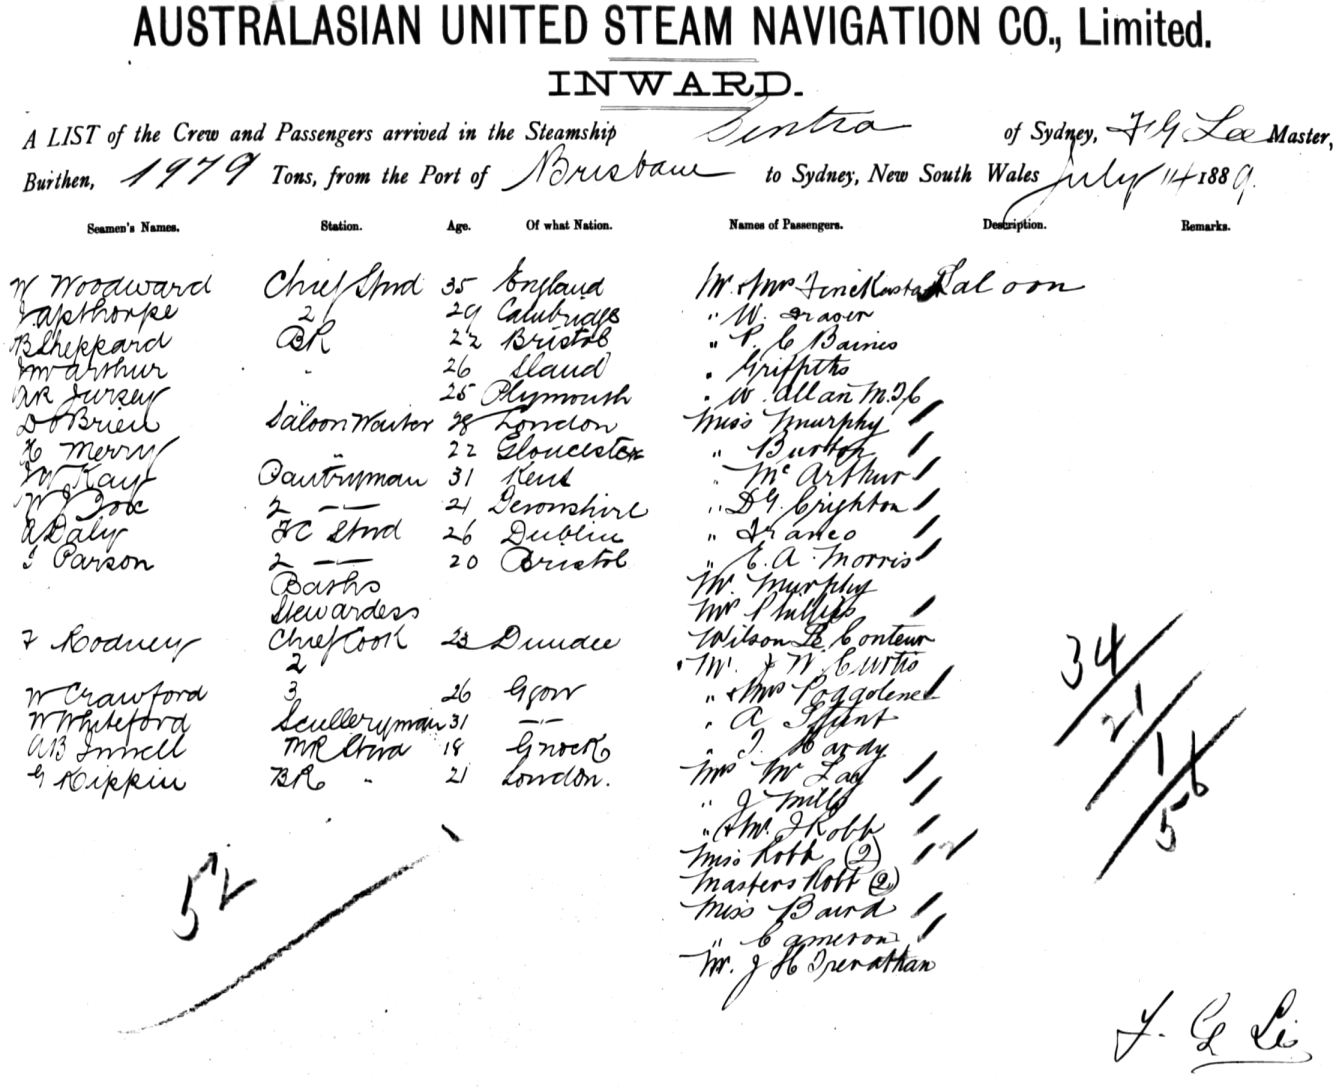 AUSTRALASIAN UNITED STEAM NAVIGATION CO., Limited.
INWARD.
A LIST of the Crew and Passengers arrived in the Steamship Cintra of Sydney, F G Lee Master,
Burthen, 1979 Tons, from the Port of Brisbane to Sydney, New South Wales July 14 1889.
Seamen's Names. Station. Age. Of what Nation. Names of Passengers. Description. Remarks.
W Woodward Chief Stwd 35 England Mr. & Mrs Saloon
Japthorpe 2 29 Cambridge " W. Fraser
B Sheppard BR 22 Bristol " P. C Baines
McArthur " 26 " Griffiths
Jursey 25 Plymouth " W. Allan M.L.C
D O'Brien Saloon Waiter 28 London Miss Murphy
H Merry " 22 Gloucester " Burton
W Kay Pantryman 31 Kent " Mc Arthur
W J 2 —"— 21 Devonshire " D G Crighton
A Daly FC Stwd 26 Dublin " Franco
J Parson 2 —"— 20 Bristol " E. A. Morris
Baths Mr. Murphy
Stewardess Mrs Phillips
F Rodney Chief Cook 23 Dundee Wilson Le Conteur
2 Mr. J W. Curtis
W Crawford 3 26 Ggow " & Mrs
W Whiteford Sculleryman 31 —"— " A
A B MR Stwd 18 Gnock " J. Hardy
G Kippin BR " 21 London. Mrs Mc Lay
" J Mills
" & Mr. J Robb
Miss Robb (2) 2
Masters Robb (2)
Miss Baird
" Cameron
Mr. J H Trenathan
34
21
1
56
52
F. G Lee